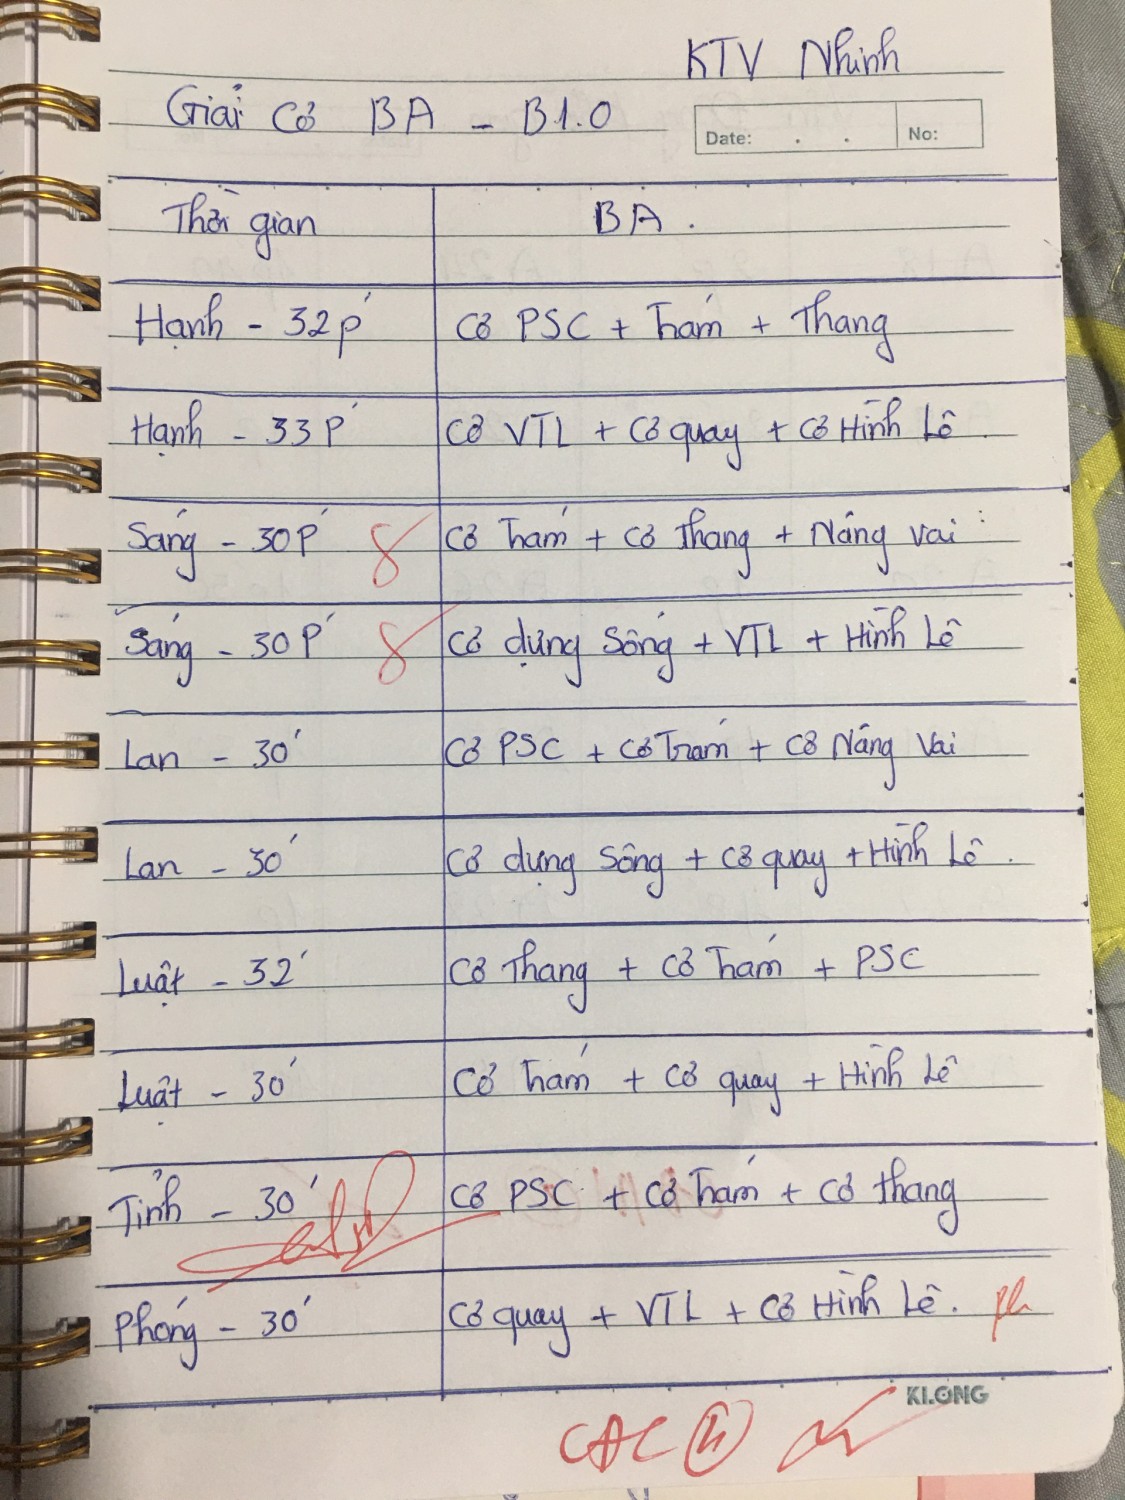 KTV Nhinh
Giải Cơ BA - B1.0
Date: . . No:
Thời gian BA.
Hạnh - 32p' Cơ PSC + Trám + Thang
Hạnh - 33P' Cơ VTL + Cơ quay + Cơ Hình Lê
Sáng - 30P' 8 Cơ Trám + Cơ Thang + Nâng vai
Sáng - 30P' 8 Cơ dựng Sống + VTL + Hình Lê
Lan - 30' Cơ PSC + Cơ Trám + Cơ Nâng Vai
Lan - 30' Cơ dựng Sống + Cơ quay + Hình Lê.
Luật - 32' Cơ Thang + Cơ Trám + PSC
Luật - 30' Cơ Trám + Cơ quay + Hình Lê
Tỉnh - 30' Cơ PSC + Cơ Trám + Cơ thang
Phóng - 30' Cơ quay + VTL + Cơ Hình Lê.
KLONG